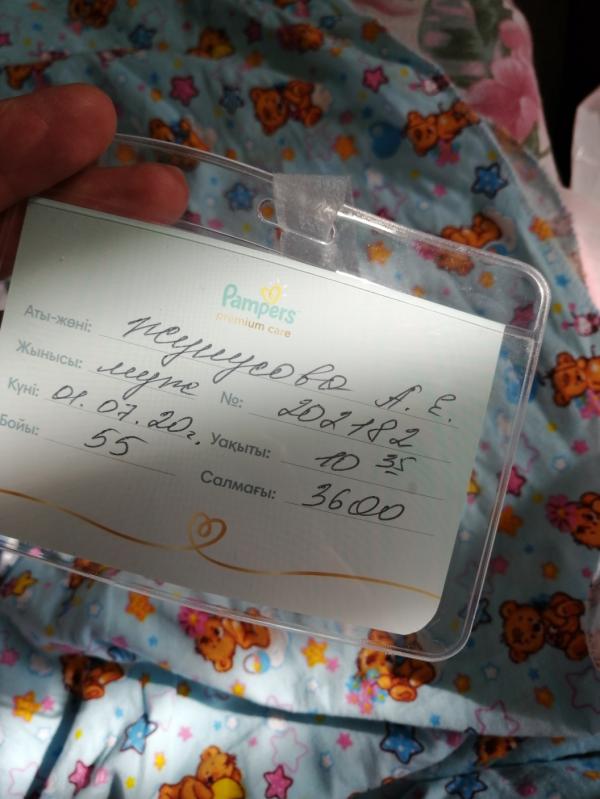 Pampers
premium care
Аты-жөні: жунусова А. Е.
Жынысы: муж №: 202182
Күні: 01.07.20г. Уақыты: 10 35
Бойы: 55 Салмағы: 3600